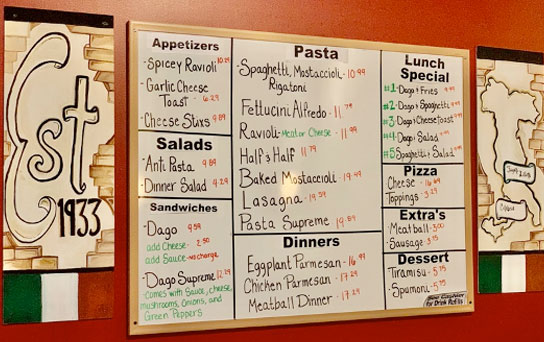 Est
1933
Appetizers
-Spicey Ravioli 10.29
-Garlic Cheese
Toast - 6.29
-Cheese Stixs 9.89
Salads
-Anti Pasta 9.89
-Dinner Salad 4.29
Sandwiches
-Dago 9.59
add Cheese - 2.50
add Sauce - no charge
-Dago Supreme 12.29
-comes with Sauce, cheese,
mushrooms, Onions, and
Green Peppers
Pasta
-Spaghetti, Mostaccioli, - 10.99
Rigatoni
Fettucini Alfredo - 11.79
Ravioli - Meat or Cheese - 11.99
Half & Half 11.79
Baked Mostaccioli - 14.49
Lasagna - 14.59
Pasta Supreme 14.89
Dinners
Eggplant Parmesan - 16.99
Chicken Parmesan - 17.29
Meatball Dinner - 17.29
Lunch
Special
#1 - Dago & Fries
#2 - Dago & Spaghetti
#3 - Dago & Cheese Toast
#4 - Dago & Salad
#5 Spaghetti & Salad
Pizza
Cheese - 16.69
Toppings - 3.25
Extra's
-Meatball - 3.00
-Sausage - 3.75
Dessert
Tiramisu - 5.75
Spumoni - 5.75
See Cashier
for Drink Refills